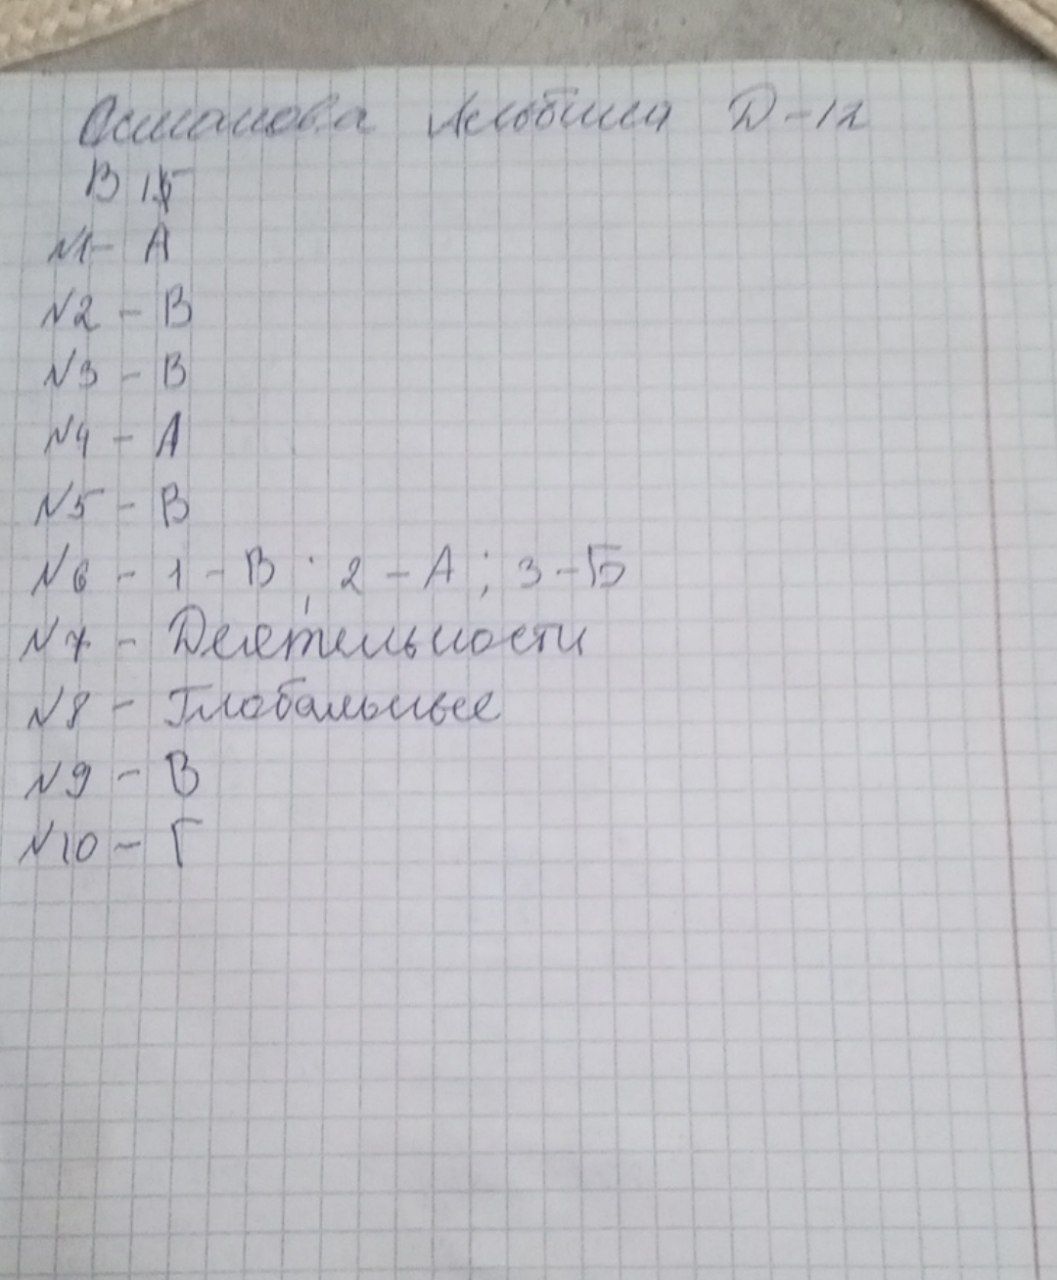 Османова Альбина Д-12
В 15
N1- А
N2 - В
N3 - В
N4 - А
N5 - В
N6 - 1 - В ; 2 - А ; 3 - Б
N7 - Деятельности
N8 - Глобальные
N9 - В
N10 - Г